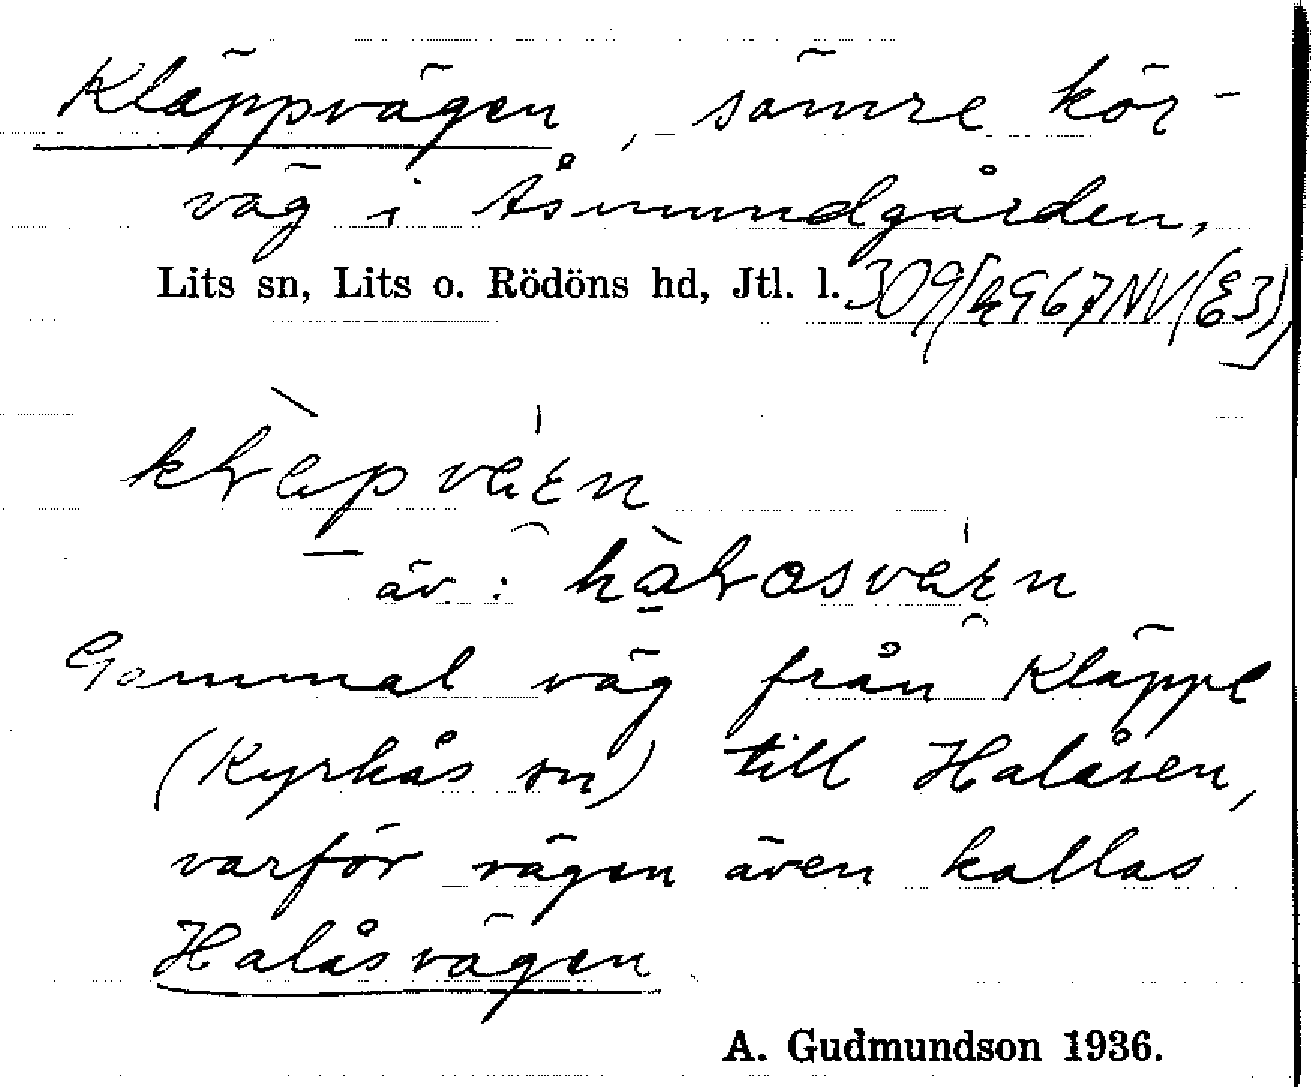 Kläppvägen, sämre kör-
väg i Åsmundgården,
Lits sn, Lits o. Rödöns hd, Jtl. l. 309/
av: 
Gammal väg från Kläppe
(Kyrkås sn) till Halåsen,
varför vägen även kallas
Halåsvägen
A. Gudmundson 1936.